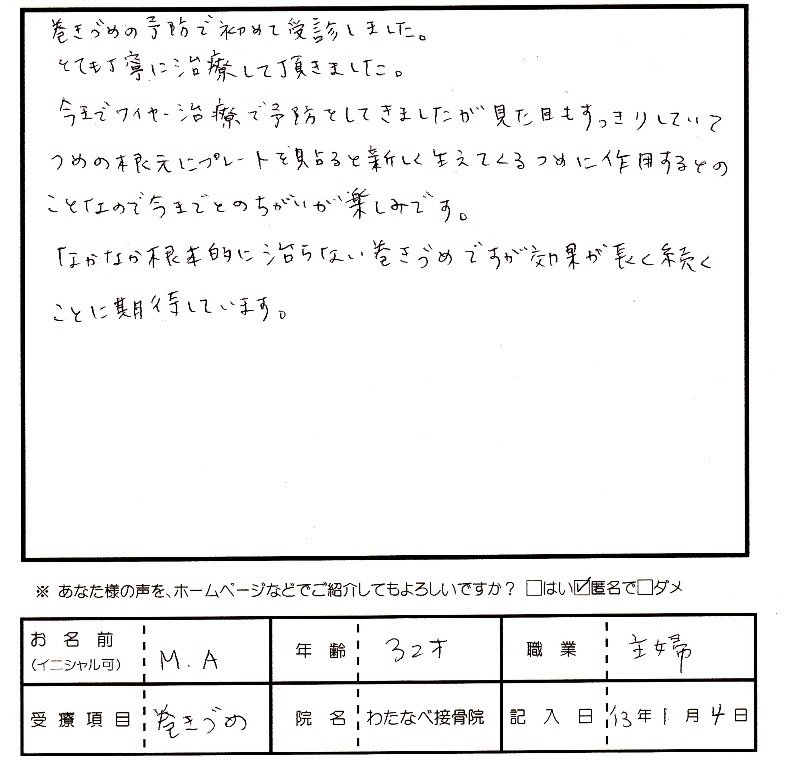 巻きづめの予防で初めて受診しました。
とても丁寧に治療して頂きました。
今までワイヤー治療で予防をしてきましたが見た目もすっきりしていて
つめの根元にプレートを貼ると新しく生えてくるつめに作用するとの
ことなので今までとのちがいが楽しみです。
なかなか根本的に治らない巻きづめですが効果が長く続く
ことに期待しています。
※ あなた様の声を、ホームページなどでご紹介してもよろしいですか？ □はい☑匿名で□ダメ
お名前 (イニシャル可) M.A 年齢 32才 職業 主婦
受療項目 巻きづめ 院名 わたなべ接骨院 記入日 '13年1月4日